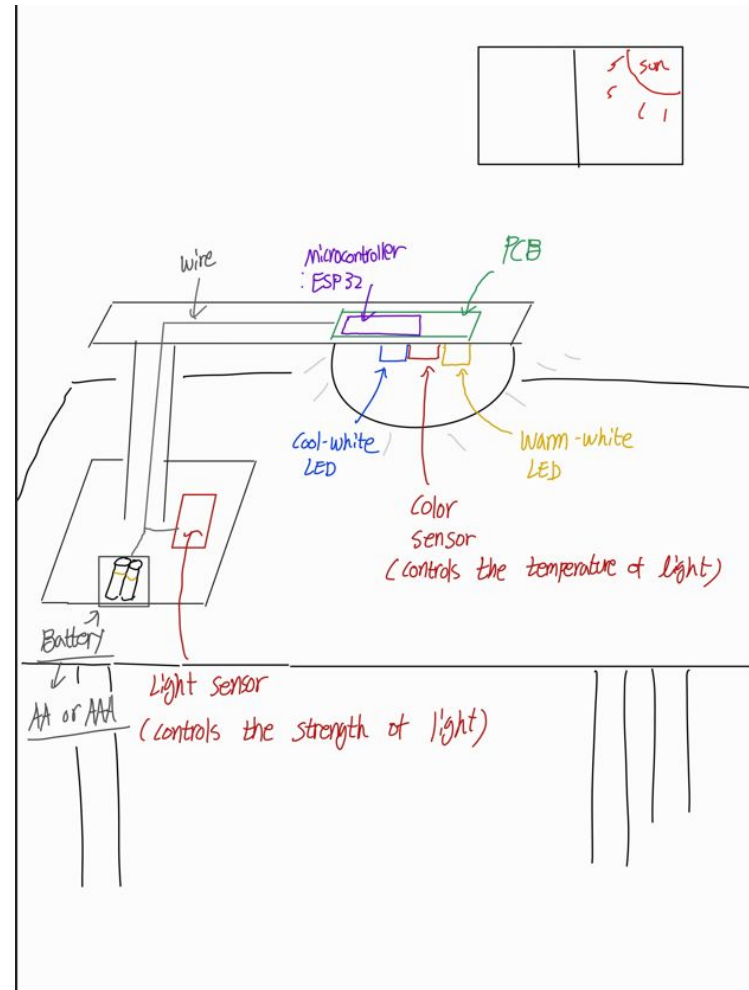 sun
wire
Microcontroller
: ESP32
PCB
Cool-white
LED
Warm-white
LED
Color
sensor
(controls the temperature of light)
Battery
AA or AAA
Light sensor
(controls the strength of light)